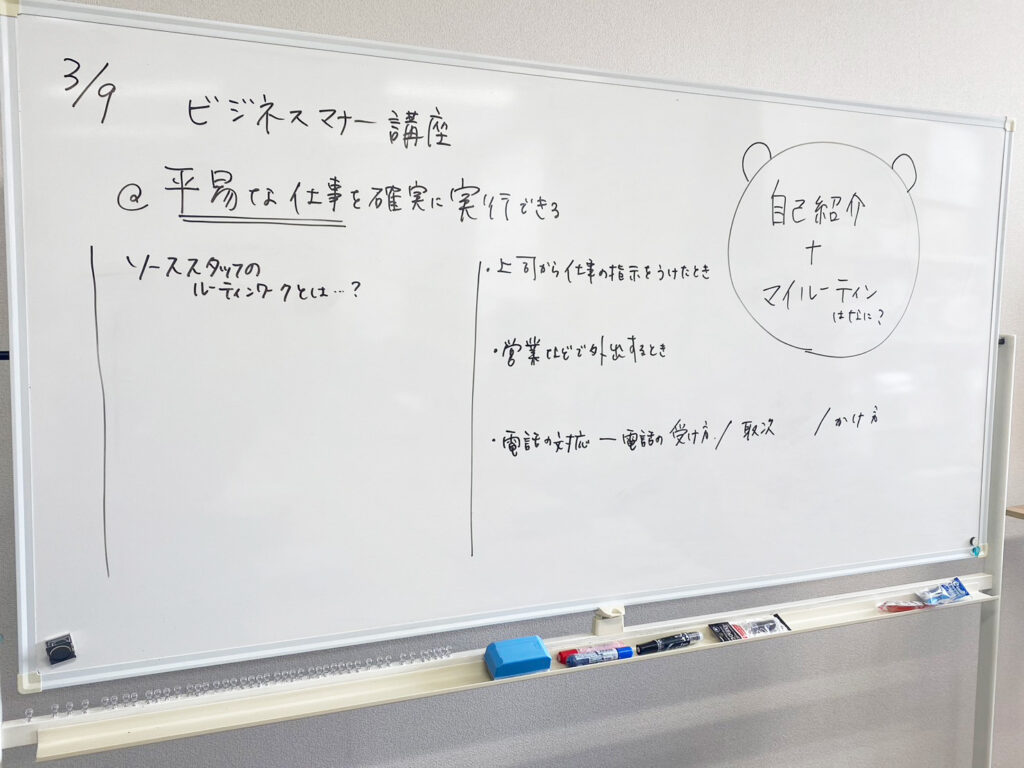 3/9
ビジネスマナー講座
@ 平易な仕事を確実に実行できる
ソーススタッフの
ルーティンワークとは…?
・上司から仕事の指示をうけたとき
・営業などで外出するとき
・電話の対応 ― 電話の受け方 / 取次 / かけ方
自己紹介
+
マイルーティン
はなに?